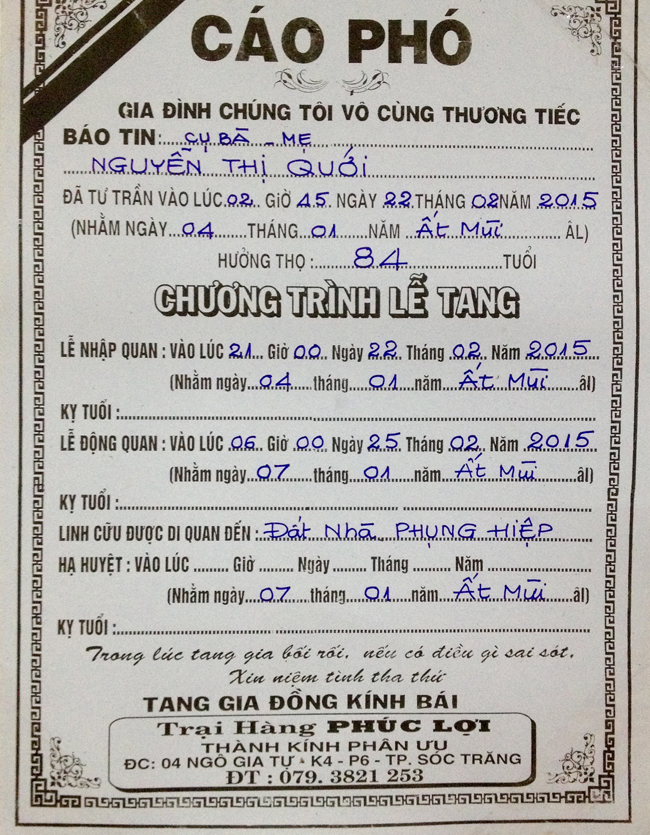 CÁO PHÓ
GIA ĐÌNH CHÚNG TÔI VÔ CÙNG THƯƠNG TIẾC
BÁO TIN: CỤ BÀ - MẸ
NGUYỄN THỊ QUỚI
ĐÃ TƯ TRẦN VÀO LÚC 02 GIỜ 45 NGÀY 22 THÁNG 02 NĂM 2015
(NHẰM NGÀY 04 THÁNG 01 NĂM Ất Mùi ÂL)
HƯỞNG THỌ: 84 TUỔI
CHƯƠNG TRÌNH LỄ TANG
LỄ NHẬP QUAN : VÀO LÚC 21 Giờ 00 Ngày 22 Tháng 02 Năm 2015
(Nhằm ngày 04 tháng 01 năm Ất Mùi âl)
KỴ TUỔI :
LỄ ĐỘNG QUAN : VÀO LÚC 06 Giờ 00 Ngày 25 Tháng 02 Năm 2015
(Nhằm ngày 07 tháng 01 năm Ất Mùi âl)
KỴ TUỔI :
LINH CỮU ĐƯỢC DI QUAN ĐẾN : Đất Nhà PHỤNG HIỆP
HẠ HUYỆT : VÀO LÚC ........ Giờ ........ Ngày ........ Tháng ........ Năm ........
(Nhằm ngày 07 tháng 01 năm Ất Mùi âl)
KỴ TUỔI :
Trong lúc tang gia bối rối, nếu có điều gì sai sót,
Xin niệm tình tha thứ
TANG GIA ĐỒNG KÍNH BÁI
Trại Hàng PHÚC LỢI
THÀNH KÍNH PHÂN ƯU
ĐC: 04 NGÔ GIA TỰ - K4 - P6 - TP. SÓC TRĂNG
ĐT : 079. 3821 253